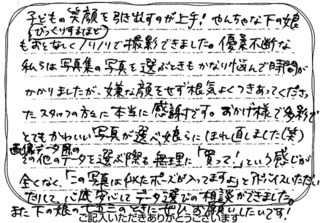 子どもの笑顔を引き出すのが上手！やんちゃな下の娘
(びっくりするほど)
もおとなしくノリノリで撮影できました。優柔不断な
私らは写真集の写真を選ぶときもかなり悩んで時間が
かかりましたが、嫌な顔をせず根気よくつきあってくださっ
たスタッフの方々に本当に感謝です。おかげ様で多彩で
とてもかわいい写真が選べ、娘らにほれ直しました(笑)
画像データ用の
その他のデータを選ぶ際も無理に「買って！」という感じが
全くなく、「この写真は似たポーズが入ってますよ」とアドバイスいただい
たりして、心底安心してデータ選びの相談ができました。
また下の娘の
お願いしたいです！
ご記入いただきありがとうございます